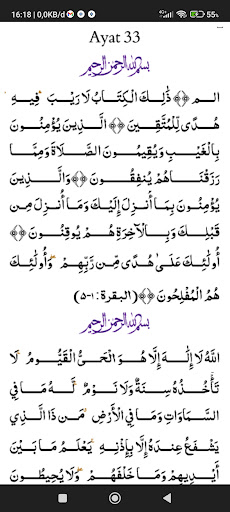 16:18 | 0,0KB/d
4G+
55%
Ayat 33
بِسْمِ اللهِ الرَّحْمٰنِ الرَّحِيْمِ
الٓمٓ ﴿﴾ ذٰلِكَ الْكِتَابُ لَا رَيْبَ فِيهِ
هُدًى لِلْمُتَّقِينَ ﴿﴾ الَّذِينَ يُؤْمِنُونَ
بِالْغَيْبِ وَيُقِيمُونَ الصَّلَاةَ وَمِمَّا
رَزَقْنَاهُمْ يُنفِقُونَ ﴿﴾ وَالَّذِينَ
يُؤْمِنُونَ بِمَا أُنزِلَ إِلَيْكَ وَمَا أُنزِلَ مِن
قَبْلِكَ وَبِالْآخِرَةِ هُمْ يُوقِنُونَ ﴿﴾
أُولَٰئِكَ عَلَىٰ هُدًى مِّن رَّبِّهِمْ وَأُولَٰئِكَ
هُمُ الْمُفْلِحُونَ ﴿﴾ (البقرة: ١-٥)
بِسْمِ اللهِ الرَّحْمٰنِ الرَّحِيْمِ
اللَّهُ لَا إِلَٰهَ إِلَّا هُوَ الْحَيُّ الْقَيُّومُ لَا
تَأْخُذُهُ سِنَةٌ وَلَا نَوْمٌ لَهُ مَا فِي
السَّمَاوَاتِ وَمَا فِي الْأَرْضِ مَن ذَا الَّذِي
يَشْفَعُ عِندَهُ إِلَّا بِإِذْنِهِ يَعْلَمُ مَا بَيْنَ
أَيْدِيهِمْ وَمَا خَلْفَهُمْ وَلَا يُحِيطُونَ